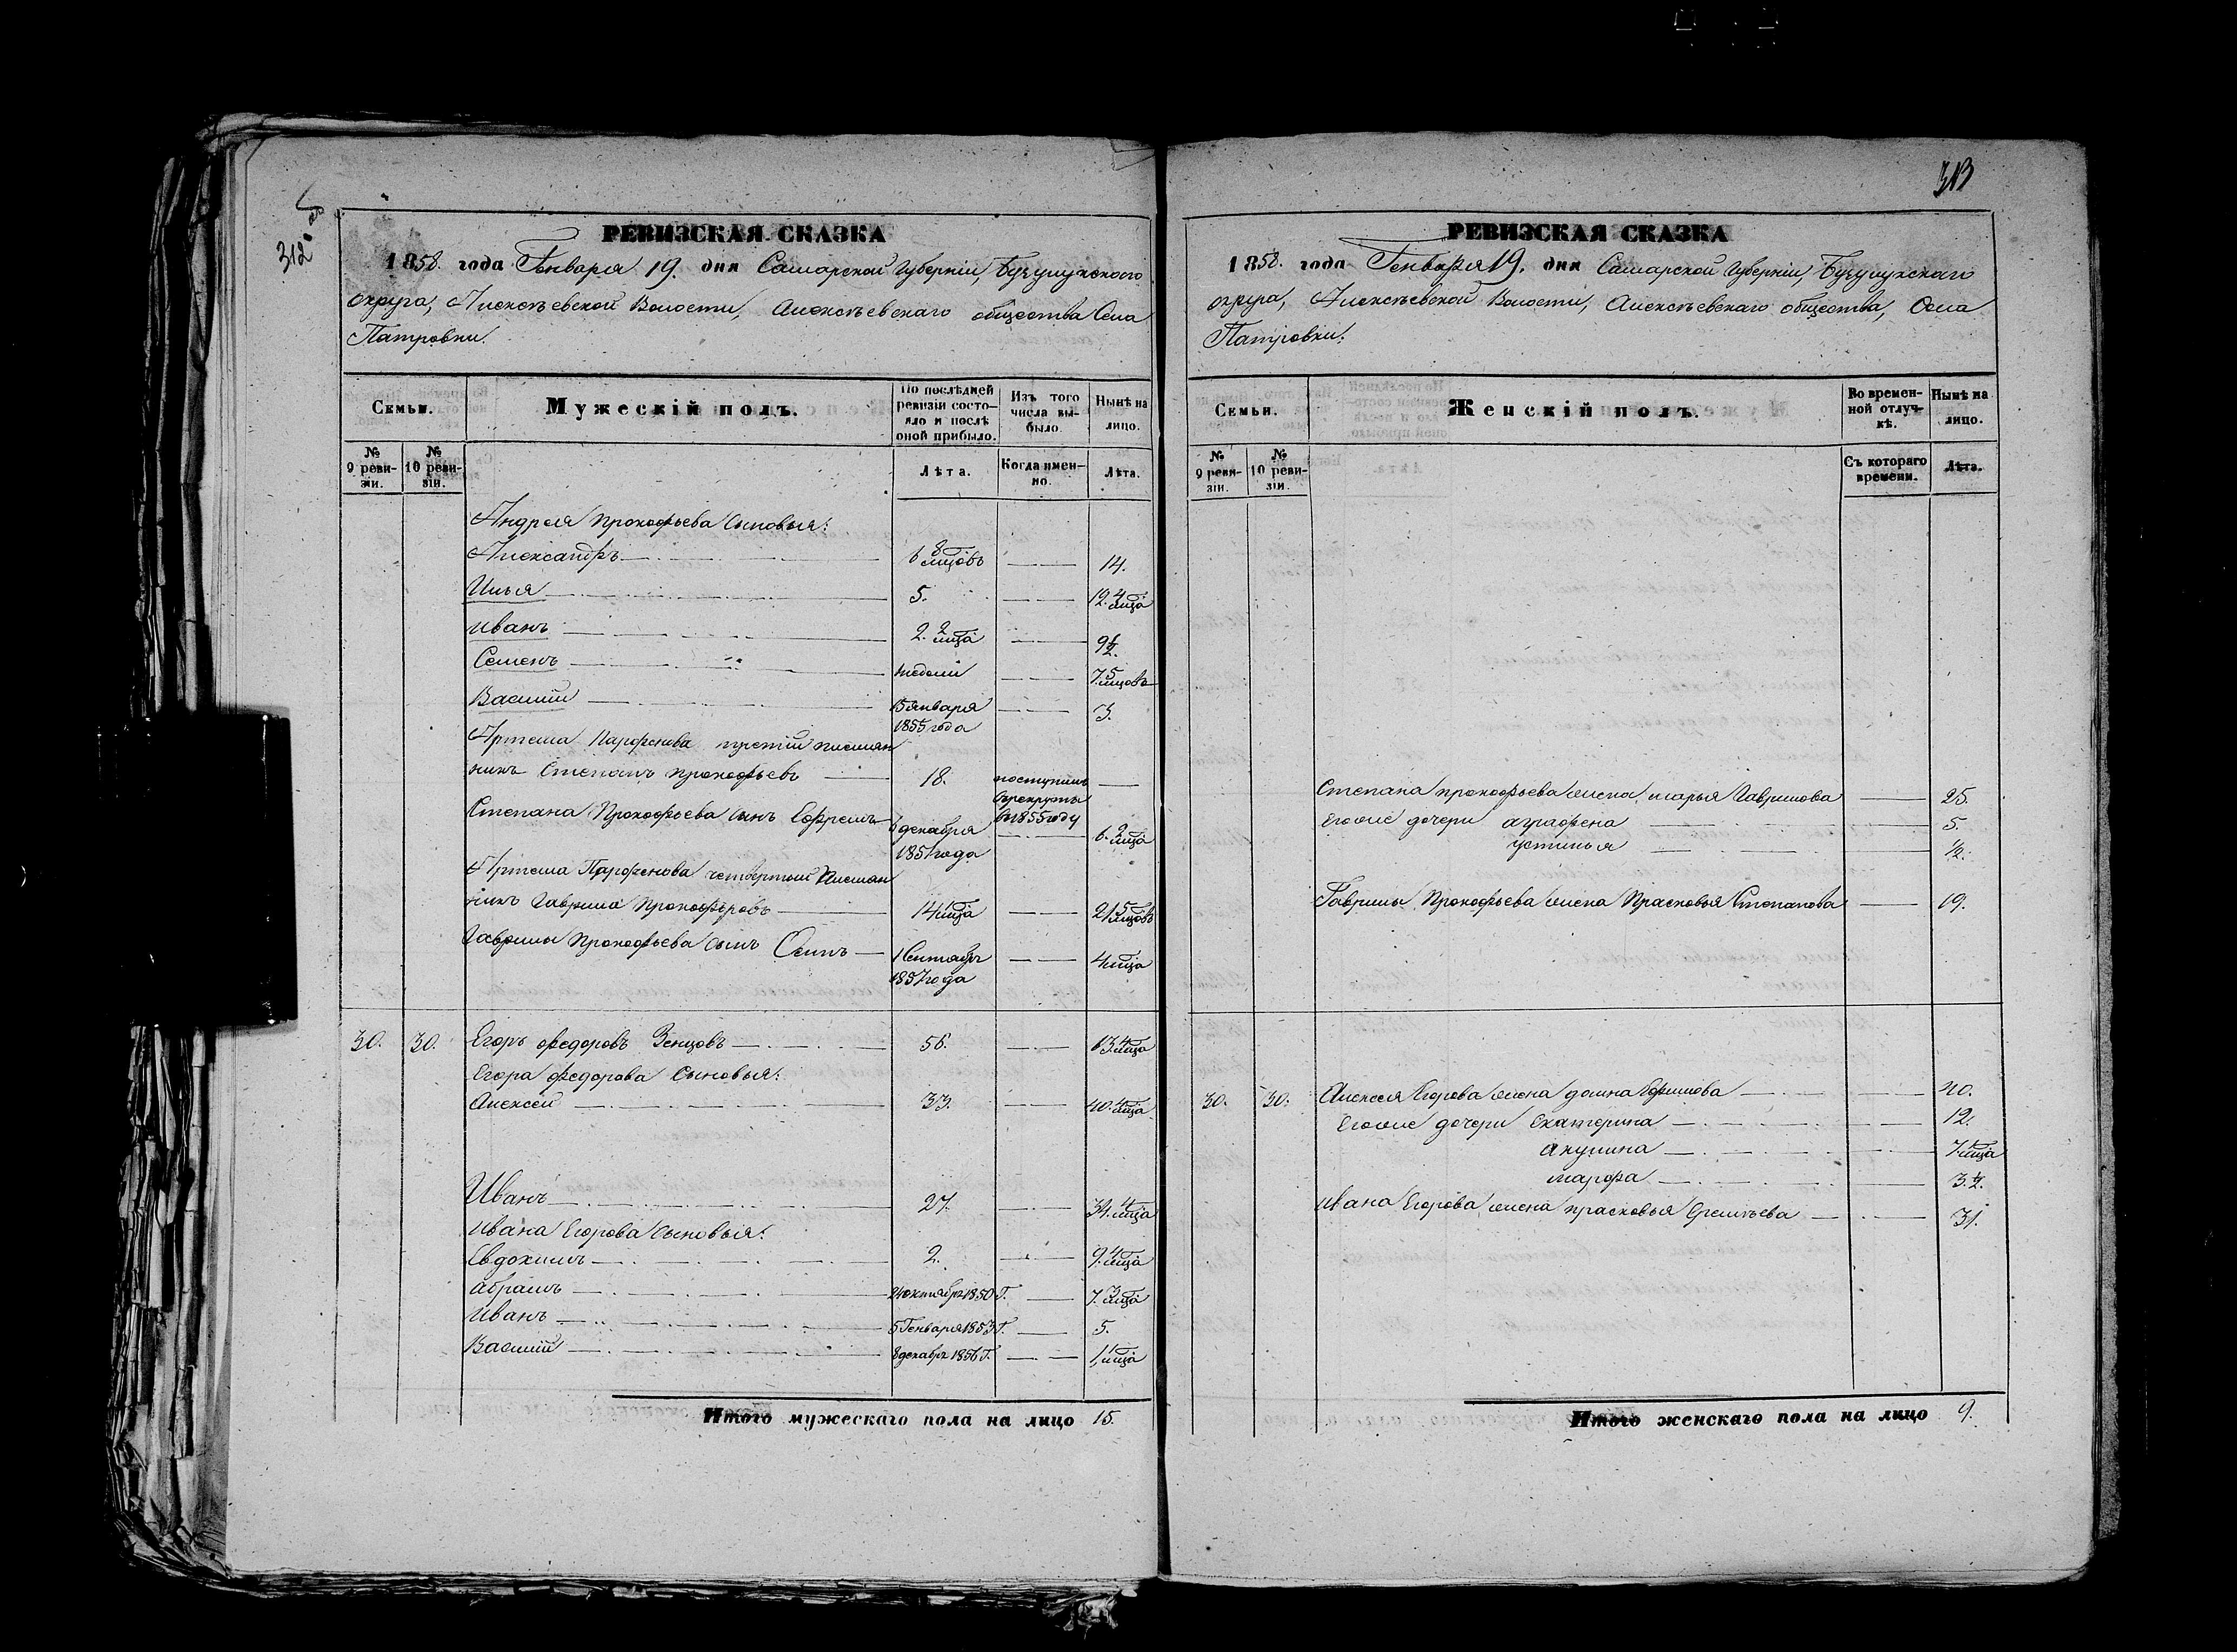 312 об
РЕВИЗСКАЯ СКАЗКА
1858. года Генваря 19. дня Самарской Губерніи, Бузулукского
округа, Алексѣевской Волости, Алексѣевскаго общества Села
Патровки.
Семьи.
Мужескій полъ.
По послѣдней ревизіи состояло и послѣ оной прибыло.
Изъ того числа выбыло.
Нынѣ на лицо.
№ 9 ревизіи.
№ 10 ревизіи.
Лѣта.
Когда именно.
Лѣта.
Андрея Прокофьева сыновья:
Александръ 6 8 мцовъ 14.
Илья 5. 12. 4 мца
Иванъ 2. 2 мца 9 1/2.
Семенъ недели 7. 5 мцовъ
Василій 15 января 3.
1855 года
Артема Парфенова третій племян
никъ Степанъ Прокофьевъ 18. поступилъ
в рекруты
в 1855 году
Степана Прокофьева сынъ Ефремъ 6 декабря 6. 2 мца
1851 года
Артема Парфенова четвертый племян
никъ Гаврила Прокофьевъ 14 1 мца 21 5 мцовъ
Гаврилы Прокофьева сынъ Осипъ 1 Сентябр 4 мца
1857 года
30. 30. Егоръ Федоровъ Зенцовъ 56. 63. 4 мца
Егора Федорова сыновья:
Алексей 33. 40. 4 мца
Иванъ 27. 34. 4 мца
Ивана Егорова сыновья:
Евдокимъ 2. 9. 4 мца
Абрамъ 24 октябр 1850 Г. 7. 3 мца
Иванъ 5 Генваря 1853 Г. 5.
Василій 8 декабр 1856 Г. 1, 1 мца
Итого мужескаго пола на лицо 15.
313
РЕВИЗСКАЯ СКАЗКА
1858. года Генваря 19. дня Самарской Губерніи, Бузулукскаго
округа, Алексѣевской Волости, Алексѣевскаго общества, Села
Патровки.
Семьи.
Женскій полъ.
Во временной отлучкѣ.
Нынѣ на лицо.
№ 9 ревизіи.
№ 10 ревизіи.
Съ котораго времени.
Лѣта.
Степана Прокофьева жена Марья Гаврилова 25.
Егоже дочери Аграфена 5.
Устинья 1/2.
Гаврилы Прокофьева жена Прасковья Степанова 19.
30. 30. Алексея Егорова жена Домна Ефимова 40.
Егоже дочери Екатерина 12.
Акулина 7. 1 мца
Марфа 3. 1/2.
Ивана Егорова жена Прасковья Еремѣева 31.
Итого женскаго пола на лицо 9.